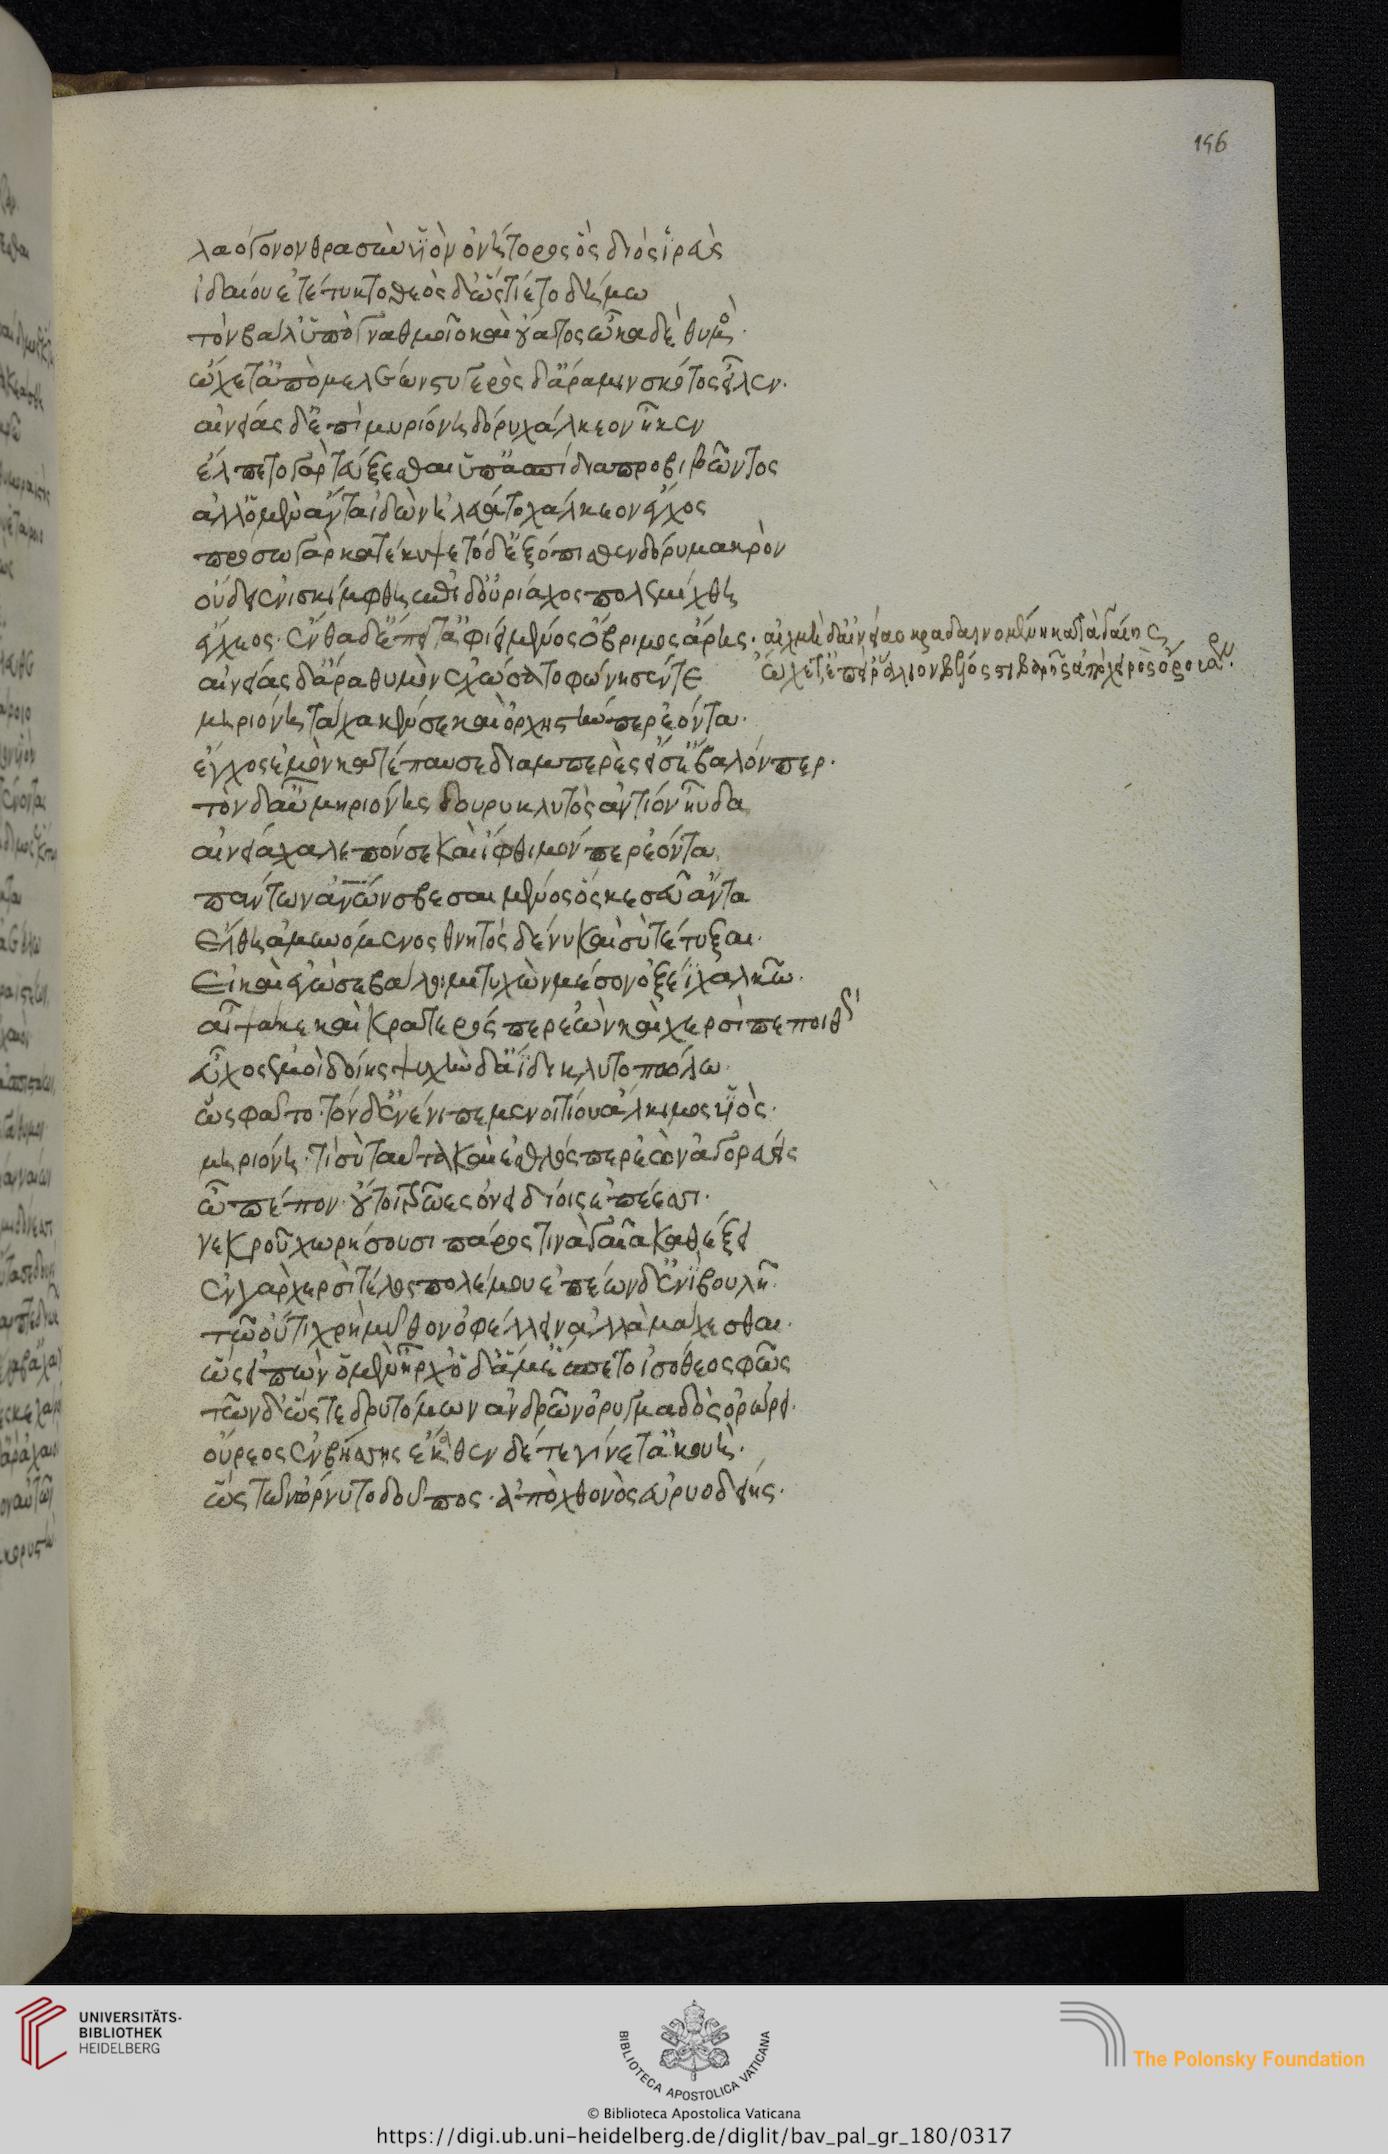 156
λαόγονον θρασὺν υἱὸν ὀνήτορος ὃς διὸς ἱρεὺς
ἰδαίου ἐτέτυκτο θεὸς δ' ὣς τίετο δήμω
τὸν βάλ' ὑπὸ γναθμοῖο καὶ οὔατος ὦκα δὲ θυμὸς.
ὤχετ' ἀπὸ μελέων στυγερὸς δ' ἄρα μιν σκότος εἷλεν.
αἰνείας δ' ἐπὶ μηριόνη δόρυ χάλκεον ἧκεν
ἔλπετο γὰρ τεύξεσθαι ὑπ' ἀσπίδια προβιβῶντος
ἀλλ' ὁ μὲν ἄντα ἰδὼν ἠλεύατο χάλκεον ἔγχος
πρόσω γὰρ κατέκυψε τὸ δ' ἐξόπισθεν δόρυ μακρὸν
οὔδει ἐνισκίμφθη ἐπὶ δ' οὐρίαχος πολεμίχθη
ἔγχεος. ἔνθα δ' ἔπειτ' ἀφίει μένος ὄβριμος ἄρης. αἰχμὴ δ' αἰνείαο κραδαινομένη κατὰ γαίης
αἰνείας δ' ἄρα θυμὸν ἐχώσατο φώνησέν τε ὤχετ' ἐπεί ῥ' ἅλιον στιβαρῆς ἀπὸ χειρὸς ὄρουσεν.
μηριόνη τάχα κέν σε καὶ ὀρχηστήν περ ἐόντα.
ἔγχος ἐμὸν κατέπαυσε διαμπερὲς εἴ σ' ἔβαλόν περ.
τὸν δ' αὖ μηριόνης δουρυκλυτὸς ἀντίον ηὔδα
αἰνεία χαλεπόν σε καὶ ἴφθιμόν περ ἐόντα
πάντων ἀνων σβέσαι μένος ὅς κέ σευ ἄντα
ἔλθη ἀμυνόμενος θνητὸς δέ νυ καὶ σὺ τέτυξαι.
εἰ καὶ ἐγώ σε βάλοιμι τυχὼν μέσον ὀξέϊ χαλκῶ.
αἶψά κε καὶ κρατερός περ ἐὼν καὶ χερσὶ πεποιθὼς
εὖχος ἐμοὶ δοίης ψυχὴν δ' ἄϊδι κλυτοπώλω.
ὣς φάτο. τὸν δ' ἐνένιπε μενοιτίου ἄλκιμος υἱὸς.
μηριόνη. τί σὺ ταῦτα καὶ ἐσθλός περ ἐὼν ἀγορεύεις
ὦ πέπον. οὔ τοι τρῶες ὀνειδείοις ἐπέεσσι.
νεκροῦ χωρήσουσι πάρος τινὰ γαῖα καθέξει
ἐν γὰρ χερσὶ τέλος πολέμου ἐπέων δ' ἐνὶ βουλῆ.
τῶ οὔτι χρὴ μῦθον ὀφέλλειν ἀλλὰ μάχεσθαι.
ὣς εἰπὼν ὁ μὲν ἦρχ' ὁ δ' ἅμ' ἕσπετο ἰσόθεος φῶς
τῶν δ' ὥς τε δρυτόμων ἀνδρῶν ὀρυμαγδὸς ὀρώρει.
οὔρεος ἐν βήσσης ἕκαθεν δέ τε γίνετ' ἀκουὴ.
ὣς τῶν ὄρνυτο δοῦπος. ἀπὸ χθονὸς εὐρυοδείης.
UNIVERSITÄTS-
BIBLIOTHEK
HEIDELBERG
BIBLIOTECA APOSTOLICA VATICANA
The Polonsky Foundation
© Biblioteca Apostolica Vaticana
https://digi.ub.uni-heidelberg.de/diglit/bav_pal_gr_180/0317